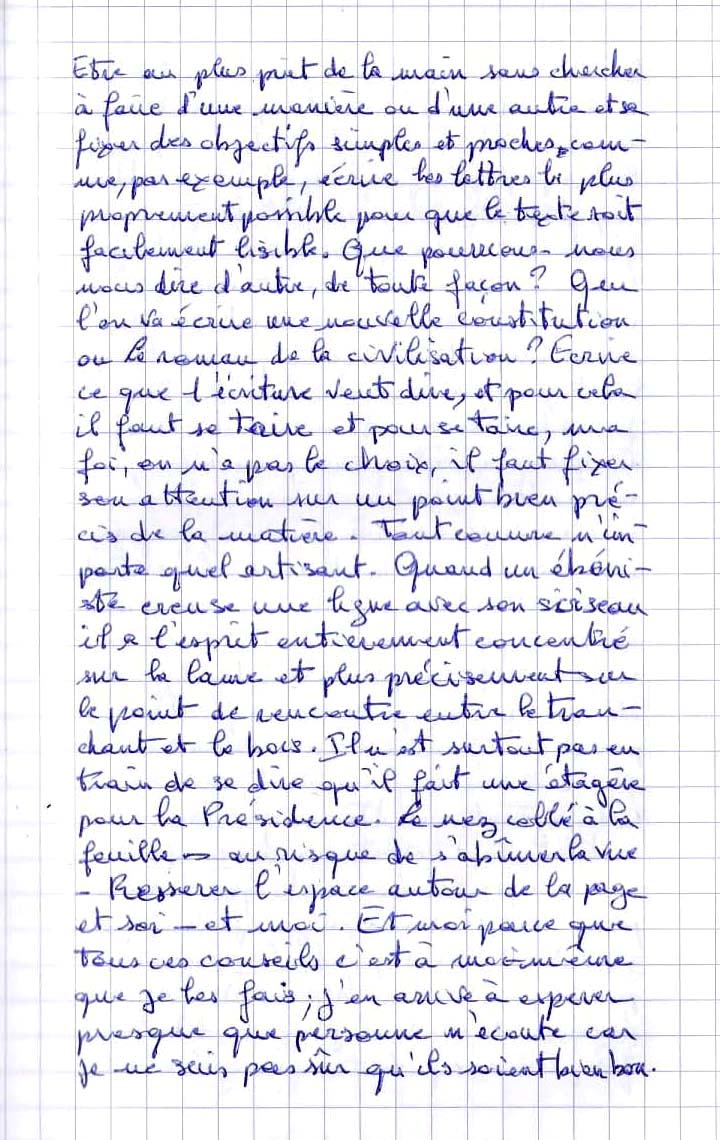 Etre au plus prêt de la main sans chercher
à faire d'une manière ou d'une autre et se
fixer des objectifs simples et proches, com-
me, par exemple, écrire les lettres le plus
proprement possible pour que le texte soit
facilement lisible. Que pourrions-nous
nous dire d'autre, de toute façon? Que
l'on va écrire une nouvelle constitution
ou le roman de la civilisation? Ecrire
ce que l'écriture veut dire, et pour cela
il faut se taire et pour se taire, ma
foi, on n'a pas le choix, il faut fixer
son attention sur un point bien pré-
cis de la matière. Tout comme n'im-
porte quel artisant. Quand un ébéni-
ste creuse une ligne avec son sciseau
il a l'esprit entièrement concentré
sur la lame et plus précisement sur
le point de rencontre entre le tran-
chant et le bois. Il n'est surtout pas en
train de se dire qu'il fait une étagère
pour la Présidence. Le nez collé à la
feuille – au risque de s'abîmer la vue
– Resserer l'espace autour de la page
et soi – et moi. Et moi parce que
tous ces conseils c'est à moi-même
que je les fais; j'en arrive à esperer
presque que personne n'écoute car
je ne suis pas sûr qu'ils soient bien bon.